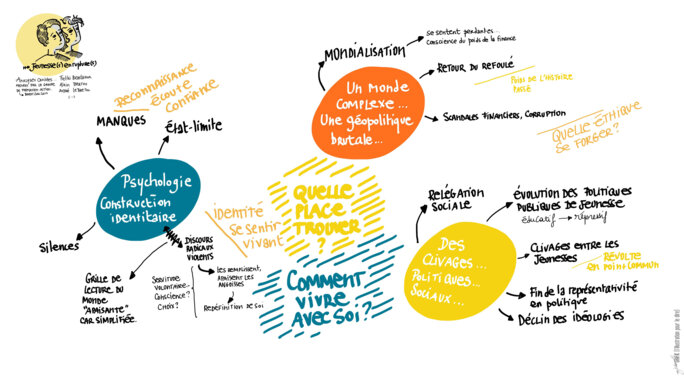 Jeunesse(s) en rupture(s)
RECONNAISSANCE
ÉCOUTE
CONFIANCE
MANQUES
ÉTAT-LIMITE
Psychologie
Construction
identitaire
Silences
GRILLE DE
LECTURE DU
MONDE
"APAISANTE"
CAR SIMPLIFIÉE.
DISCOURS
RADICAUX
VIOLENTS
SERVITUDE
VOLONTAIRE...
CONSCIENCE?
CHOIX?
LES REMPLISSENT,
APAISENT LES
ANGOISSES
REDÉFINITION DE SOI
IDENTITÉ
SE SENTIR
VIVANT
QUELLE
PLACE
TROUVER
?
COMMENT
VIVRE
AVEC SOI?
MONDIALISATION
SE SENTENT PERDANTES...
CONSCIENCE DU POIDS DE LA FINANCE
UN MONDE
COMPLEXE...
UNE GÉOPOLITIQUE
BRUTALE...
RETOUR DU REFOULÉ
POIDS DE L'HISTOIRE
PASSÉ
SCANDALES FINANCIERS, CORRUPTION
QUELLE ÉTHIQUE
SE FORGER?
DES
CLIVAGES...
POLITIQUES...
SOCIAUX...
RELÉGATION
SOCIALE
ÉVOLUTION DES POLITIQUES
PUBLIQUES DE JEUNESSE
éducatif → répressif
CLIVAGES ENTRE LES
JEUNESSES
RÉVOLTE
EN POINT COMMUN
Fin de la représentativité
en politique
DÉCLIN DES IDÉOLOGIES